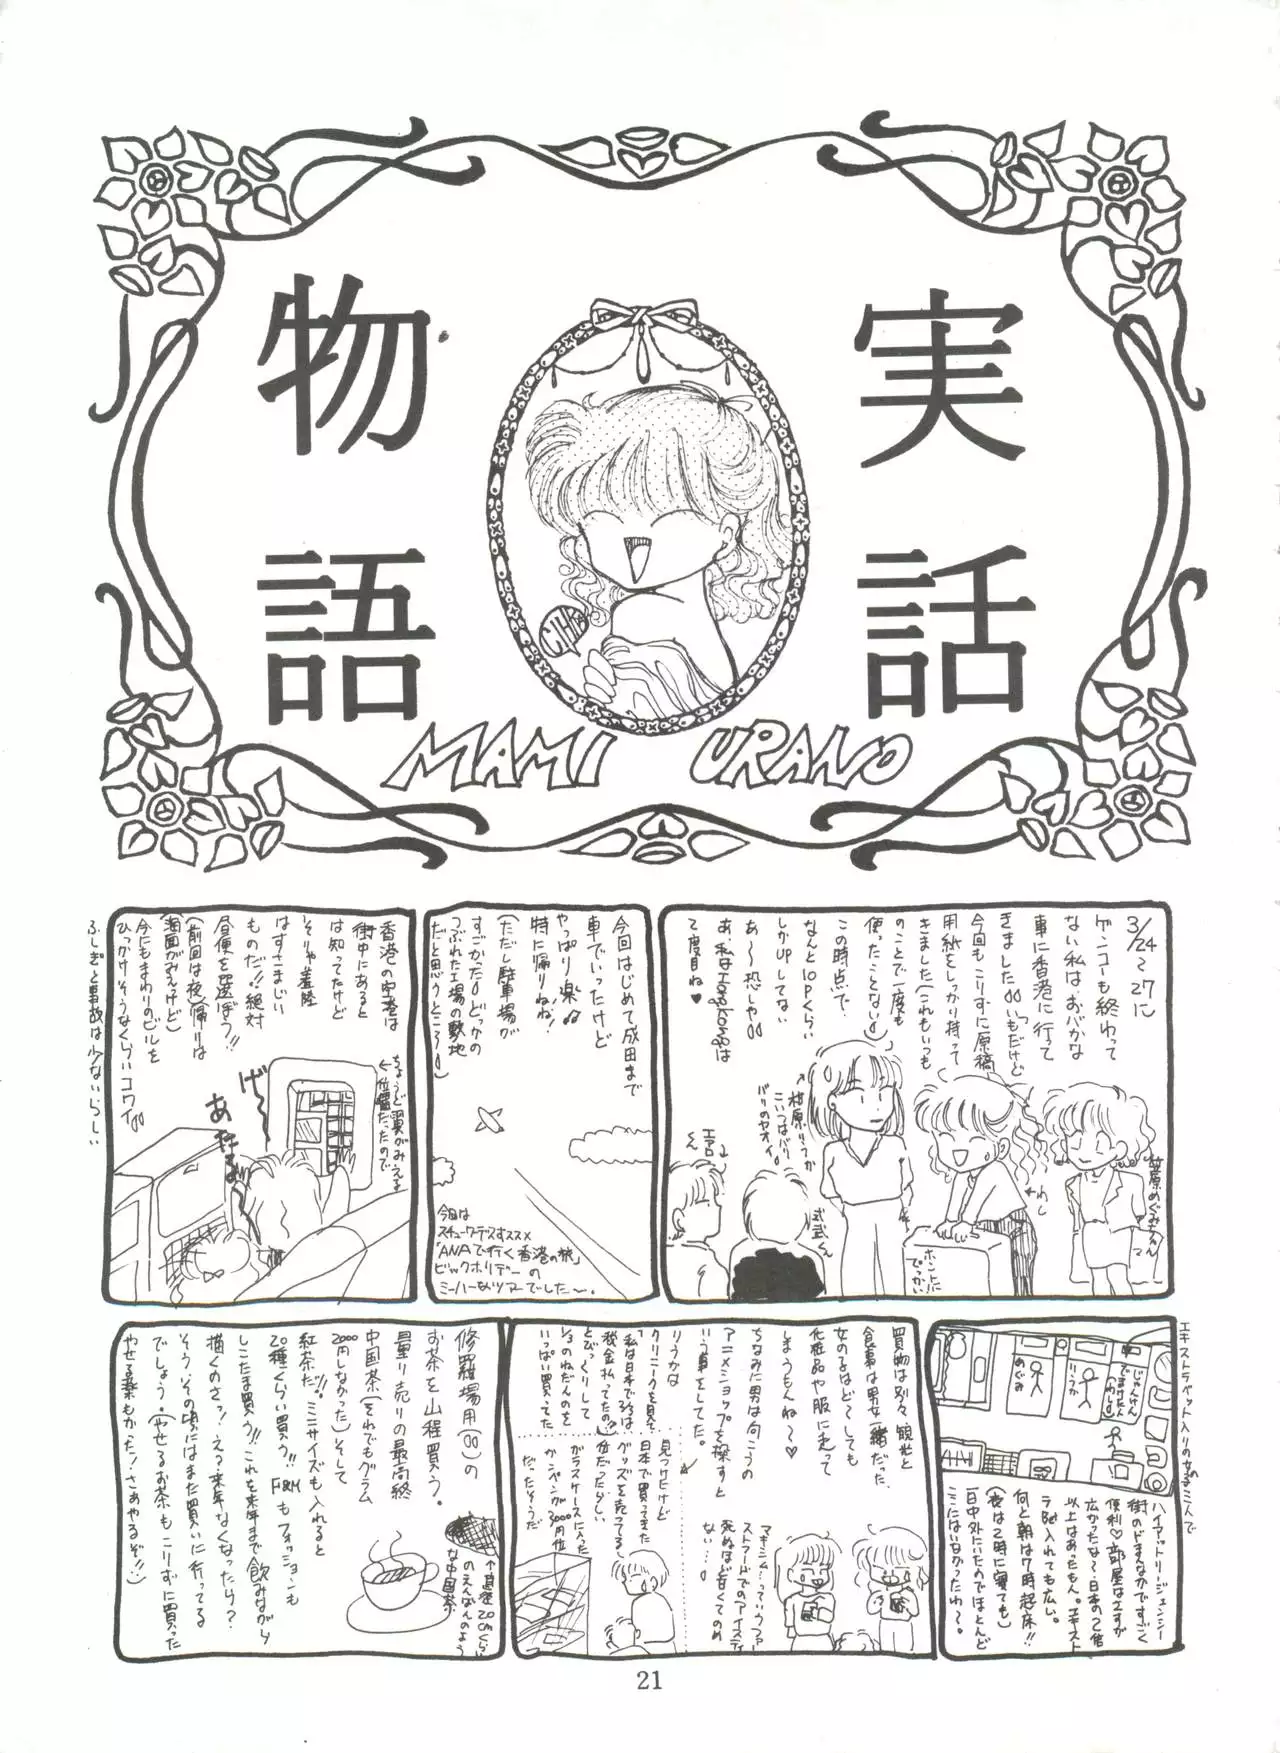 実話
物語
MAMI URANO
3/24〜27に
ゲンコーも終わって
ない私は、おバカな
事に香港に行って
きました(いつもだけど)
今回もこりずに原稿
用紙をしっかり持って
きました(これもいつも
のことで一度も
使ったことない)
この時点で
なんと10Pくらい
しかUPしてない
あ〜恐しや
あ、私はHongkongは
2度目ね♥
笠原めぐみちゃん
←わし
ホントに
でっかい!
柑原りうか
こいつはバリ
バリのヤオイ。
武武くん
エ呂
くん
今回はじめて成田まで
車でいったけど
やっぱり楽ね
特に帰りね!
(ただし駐車場が
すごかったどっかの
つぶれた工場の敷地
だと思うところ)
今回は
スチュワーデスすススメ
「ANAで行く香港の旅」
ビックホリデーの
ミーハーなツアーでした〜。
香港の空港は
街中にあると
は知ってたけど
そりゃ着陸
はすさまじい
ものだ!!絶対
昼便を選ぼう!!
(前回は夜、帰りは
海面がみえけど)
今にもまわりのビルを
ひっかけそうなくらいコワイ
ふしぎと事故は少ないらしい
ちょうど翼がみえる
←位置だったので
げ〜
あたるよ
エキストラベット入りの女の子三人で
じゃんけん
でまけた人
(わし)
りうか
めぐみ
ハイアットリージェンシー
街のどまんなかですごく
便利♡部屋はエすが
広かったな〜日本の2倍
以上はあったもん。エキスト
ラBed入れても広い。
何と朝は7時起床!!
(夜は2時に寝ても)
一日中外にいたのでほとんど
ここにはいなかったわ〜。
買物は別々 観光と
食事は男女一緒だった。
女の子はど〜しても
化粧品や服に走って
しまうもんね〜♡
ちなみに男は向こうの
アニメショップを探すと
いう事をしてた。
りうかは
クリニークを見て
「私は日本で2/3は
税金払ってたの?」
とびっくりして
1/3のねだんのを
いっぱい買ってた
見つけたけど
日本で買ってきた
グッズを売ってる
位だったらしい
ガラスケースに入った
ガシャポンが3000円位
だったそうだ
マキシム…っていうファー
ストフードでのアイスティ
死ぬほど甘くてのめ
ない…
修羅場用の
お茶を山程買う。
量り売りの最高級
中国茶(それでもグラム
2000円しなかった)そして
紅茶だ!!ミニサイズも入れると
20種くらい買う!!F&Mもフォションも
しこたま買う!!これを来年まで飲みながら
描くのさっ!え?来年なくなったら?
そう、その頃にはまた買いに行ってる
でしょう。(やせるお茶もこりずに買った
やせる薬もかった!さあやるぞ!!)
↑直径20cmくらい
のえんばんのよう
な中国茶
21